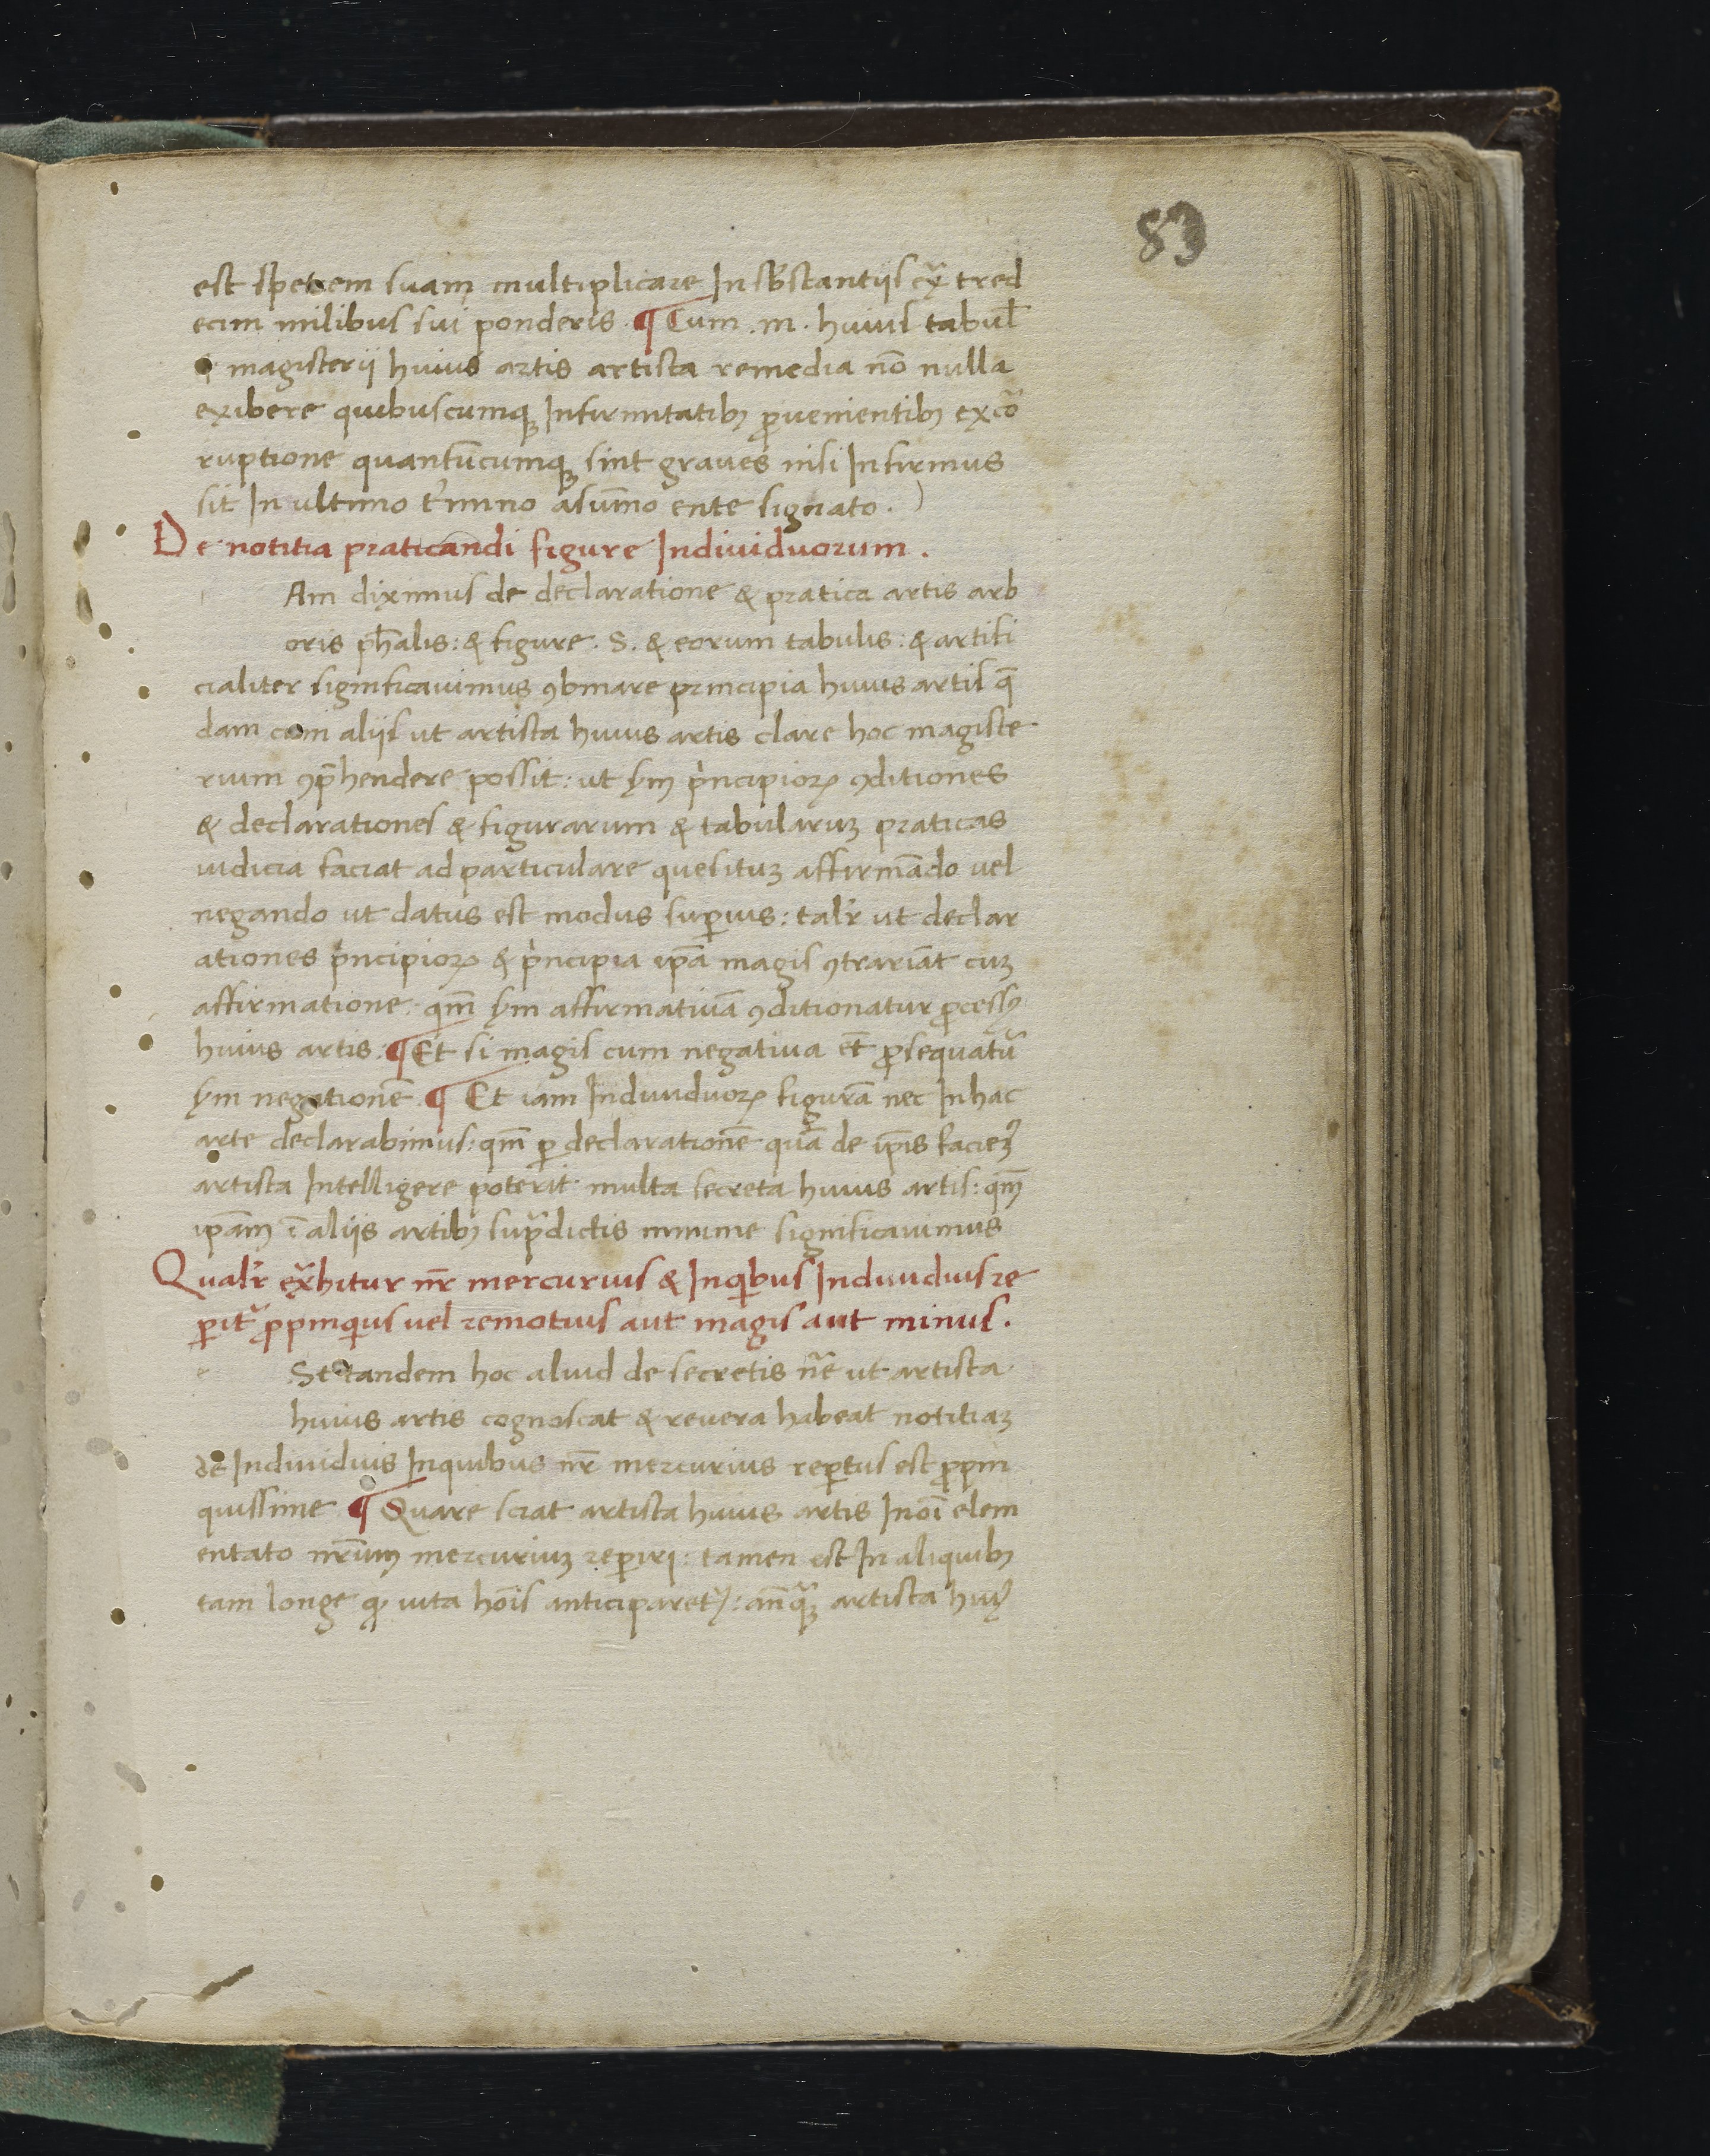 83
est spetiem suam multiplicare In sb̄stantiis cx̄ tred
ecim milibus sui ponderis. ¶ Cum .m. huius tabul̄
magisterii huius artis artista remedia nō nulla
exibere quibuscumqꝫ Infirmitatibꝫ ꝓuenientibꝫ ex cō
ruptione quantūcumqꝫ sint graues nisi Infirmus
sit In ultimo t̄mino a sūmo ente signato.
De notitia praticāndi figure Indiuiduorum.
Am diximus de declaratione & pratica artis arb
oris ph̄alis: & figure. S. & eorum tabulis: & artifi
cialiter significauimus ꝯbinare principia huius artis q̄
dam cum aliis ut artista huius artis clare hoc magiste
rium ꝯp̄hendere possit: ut ẜm pͥncipioꝝ ꝯditiones
& declarationes & figurarum & tabularuꝫ praticas
iudicia faciat ad particulare quesituꝫ affirmādo uel
negando ut datus est modus suꝑius: tal'r ut declar
ationes pͥncipioꝝ & pͥncipia ip̄a magis ꝯtrariāt cuꝫ
affirmatione. qm̄ ẜm affirmatiuā ꝯditionatur ꝓcessꝰ
huius artis: ¶ Et si magis cum negatiua et̄ ꝓsequatur̄
ẜm negationē. ¶ Et iam Indiuiduoꝝ figurā nec In hac
arte declarabimus: qm̄ ꝑ declarationē quā de ip̄is faciēꝫ
artista Intelligere poterit multa secreta huius artis: qm̄
ip̄am ī aliis artibꝫ sup̄dictis minime significauimus
Qual'r ex̄hitur nr̄ mercurius & In qͥbus Indiuiduis re
ꝑit̄ ꝓpinqͥus uel remotius aut magis aut minus.
St tandem hoc aliud de secretis nr̄e ut artista
huius artis cognoscat & reuera habeat notitiaꝫ
de Indiuiduis In quibus nr̄ mercurius reꝑtus est ꝓpin
quissime ¶ Quare sciat artista huius artis In oī elem
entato nr̄um mercuriuꝫ reꝑiri: tamen est In aliquibꝫ
tam longe ꝙ uita hōis anticiparet᷑: an̄qꝫ artista huiꝰ